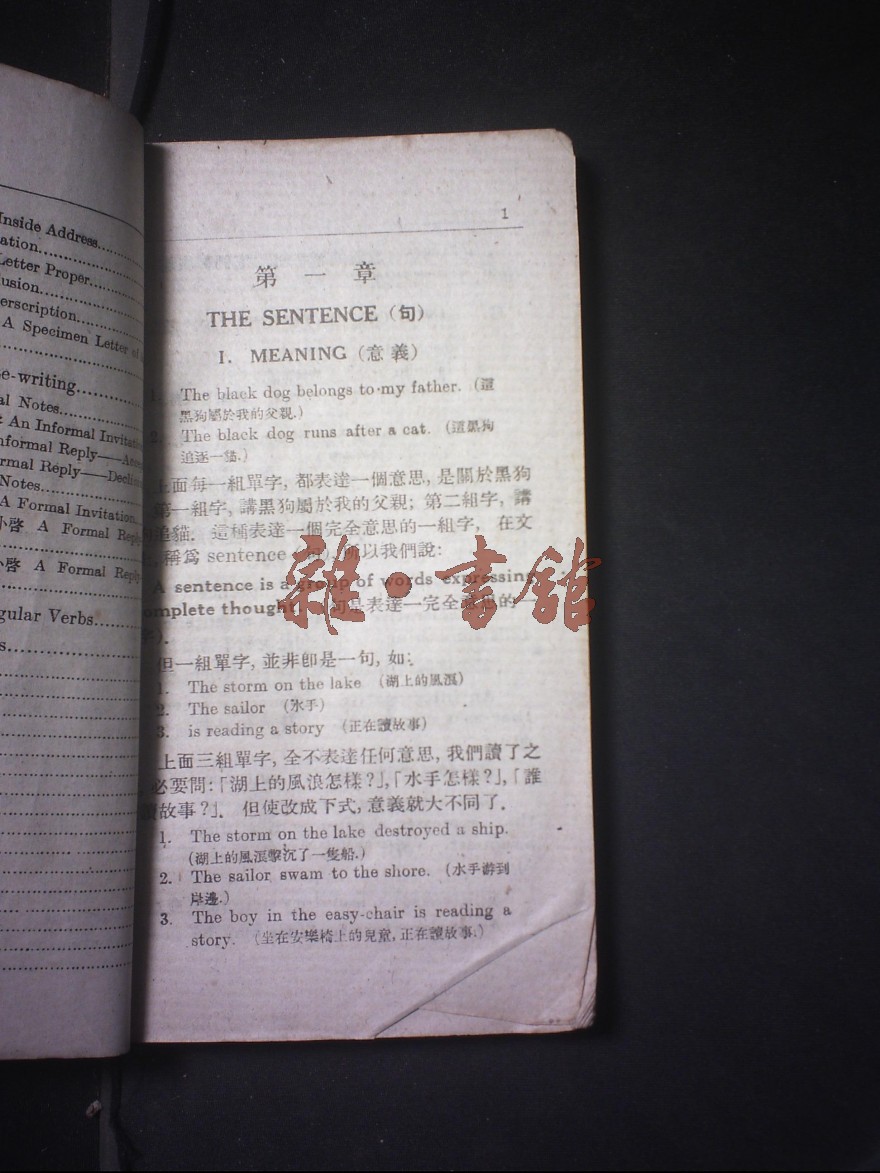 Inside Address
ation
Letter Proper
lusion
erscription
A Specimen Letter of
e-writing
al Notes
An Informal Invitation
nformal Reply——Acce
rmal Reply——Declin
Notes
A Formal Invitation
小啓 A Formal Reply
小啓 A Formal Reply
gular Verbs
s
1
第一章
THE SENTENCE (句)
I. MEANING (意義)
1. The black dog belongs to my father. (這
黑狗屬於我的父親.)
2. The black dog runs after a cat. (這黑狗
追逐一貓.)
上面每一組單字, 都表達一個意思, 是關於黑狗
第一組字, 講黑狗屬於我的父親; 第二組字, 講
追貓. 這種表達一個完全意思的一組字, 在文
稱爲 sentence 所以我們說:
A sentence is a group of words expressing
omplete thought. 句是表達一完全意思的一
字).
但一組單字, 並非卽是一句, 如:
1. The storm on the lake (湖上的風浪)
2. The sailor (水手)
3. is reading a story (正在讀故事)
上面三組單字, 全不表達任何意思, 我們讀了之
必要問:「湖上的風浪怎樣?」,「水手怎樣?」,「誰
讀故事?」. 但使改成下式, 意義就大不同了.
1. The storm on the lake destroyed a ship.
(湖上的風浪擊沉了一隻船.)
2. The sailor swam to the shore. (水手游到
岸邊.)
3. The boy in the easy-chair is reading a
story. (坐在安樂椅上的兒童, 正在讀故事.)
雜·書館